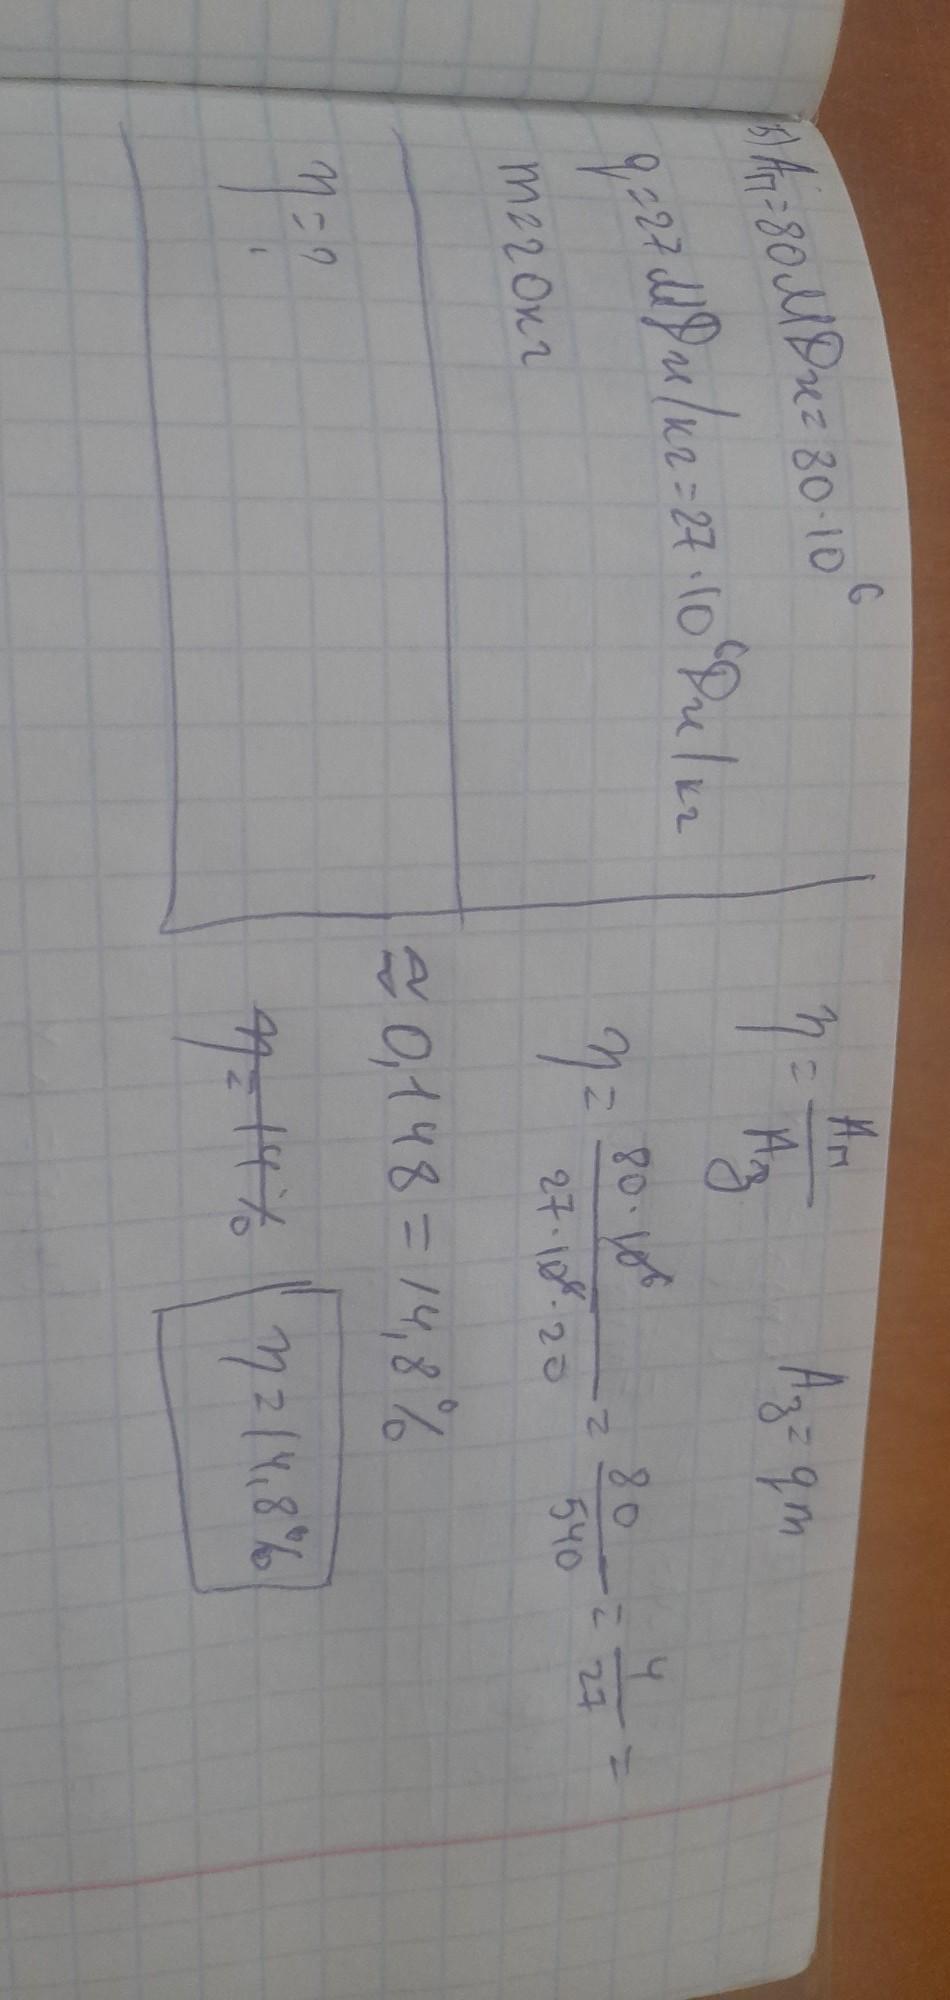 5) Aп = 80 МДж = 80 · 10^6
q = 27 МДж/кг = 27 · 10^6 Дж/кг
m = 20 кг
η = ?
η = Aп/Aз Aз = qm
η = 80 · 10^6/27 · 10^6 · 20 = 80/540 = 4/27 =
≈ 0,148 = 14,8%
η = 14%
η = 14,8%